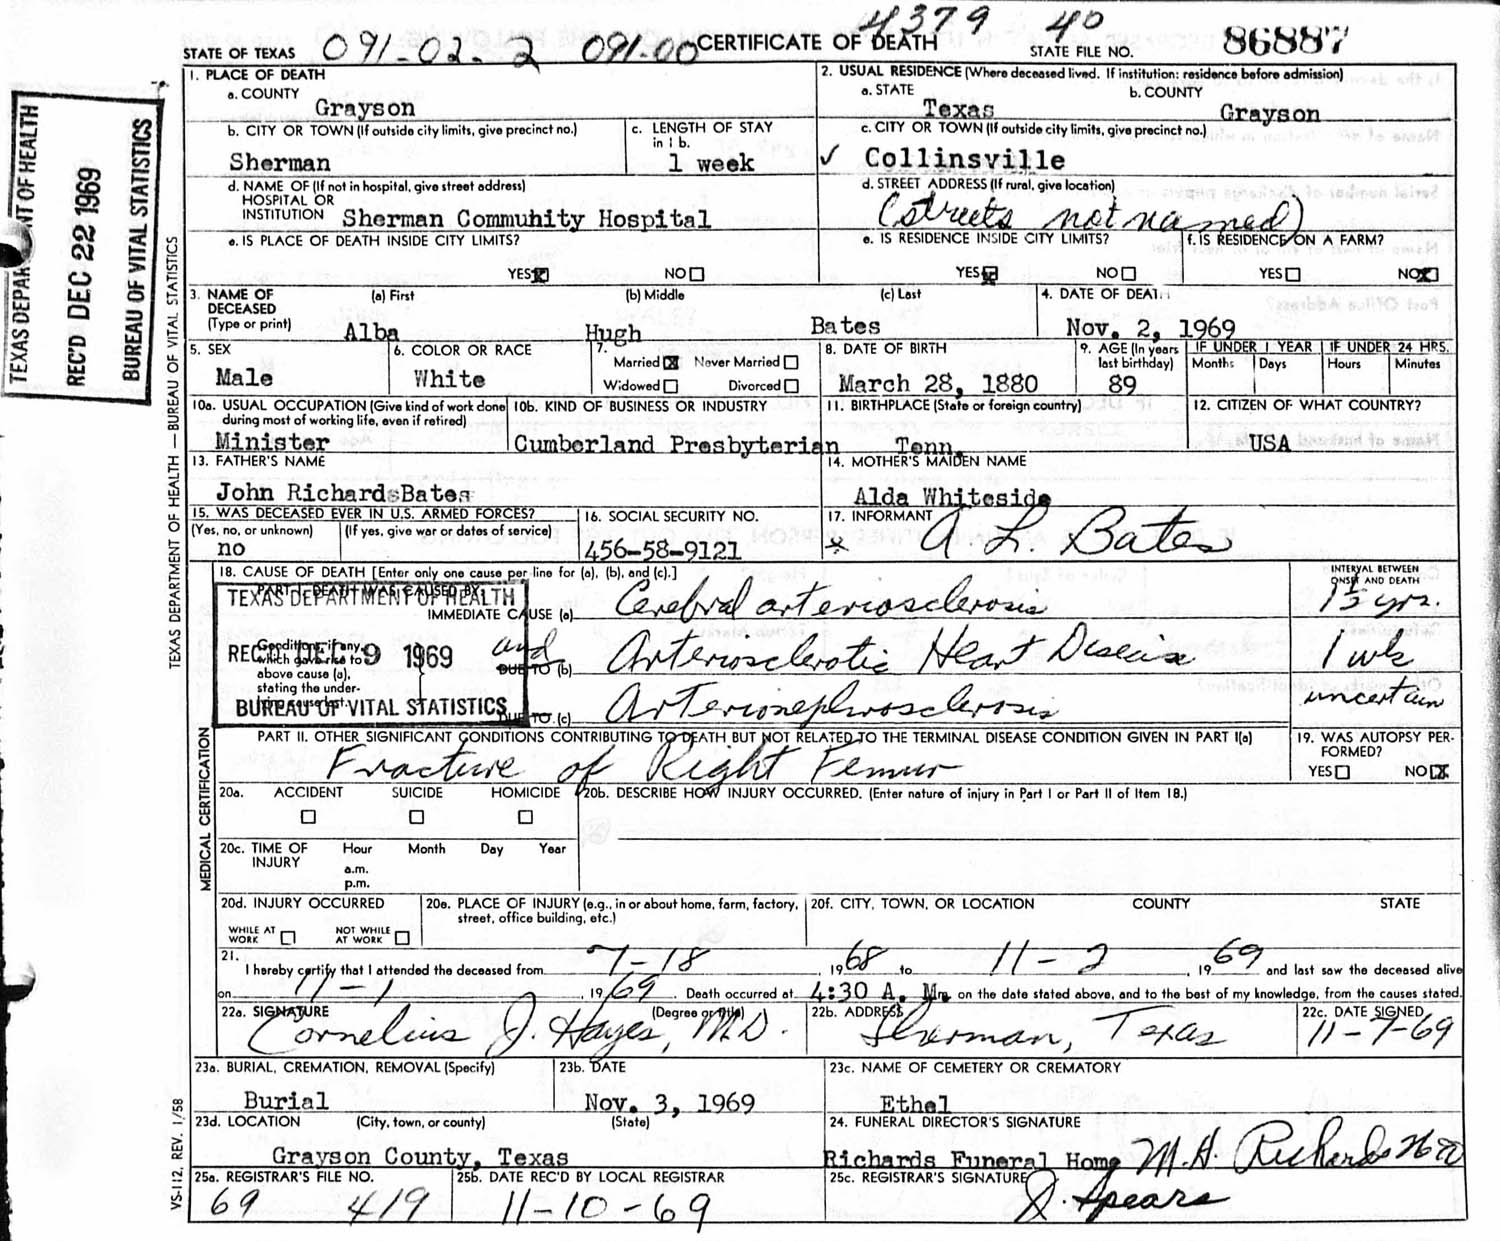 4379 40
STATE OF TEXAS 091-02-2 091-00 CERTIFICATE OF DEATH STATE FILE NO. 86887
1. PLACE OF DEATH
a. COUNTY
Grayson
2. USUAL RESIDENCE (Where deceased lived. If institution: residence before admission)
a. STATE b. COUNTY
Texas Grayson
b. CITY OR TOWN (If outside city limits, give precinct no.)
Sherman
c. LENGTH OF STAY in 1 b.
1 week
c. CITY OR TOWN (If outside city limits, give precinct no.)
✓ Collinsville
d. NAME OF (If not in hospital, give street address)
HOSPITAL OR
INSTITUTION Sherman Commuhity Hospital
d. STREET ADDRESS (If rural, give location)
(streets not named)
e. IS PLACE OF DEATH INSIDE CITY LIMITS?
YES NO
e. IS RESIDENCE INSIDE CITY LIMITS?
YES NO
f. IS RESIDENCE ON A FARM?
YES NO
3. NAME OF DECEASED (Type or print)
(a) First (b) Middle (c) Last
Alba Hugh Bates
4. DATE OF DEATH
Nov. 2, 1969
5. SEX
Male
6. COLOR OR RACE
White
7.
Married Never Married
Widowed Divorced
8. DATE OF BIRTH
March 28, 1880
9. AGE (In years last birthday)
89
IF UNDER 1 YEAR
Months Days
IF UNDER 24 HRS.
Hours Minutes
10a. USUAL OCCUPATION (Give kind of work done during most of working life, even if retired)
Minister
10b. KIND OF BUSINESS OR INDUSTRY
Cumberland Presbyterian
11. BIRTHPLACE (State or foreign country)
Tenn.
12. CITIZEN OF WHAT COUNTRY?
USA
13. FATHER'S NAME
John Richards Bates
14. MOTHER'S MAIDEN NAME
Alda Whiteside
15. WAS DECEASED EVER IN U.S. ARMED FORCES?
(Yes, no, or unknown) (If yes, give war or dates of service)
no
16. SOCIAL SECURITY NO.
456-58-9121
17. INFORMANT
* A. L. Bates
18. CAUSE OF DEATH [Enter only one cause per line for (a), (b), and (c).]
PART I. DEATH WAS CAUSED BY
IMMEDIATE CAUSE (a) Cerebral arteriosclerosis
INTERVAL BETWEEN ONSET AND DEATH
1 1/2 yrs.
Conditions, if any, which gave rise to above cause (a), stating the under-lying cause last.
and DUE TO (b) Arteriosclerotic Heart Disease 1 wk
DUE TO (c) Arterionephrosclerosis uncertain
TEXAS DEPARTMENT OF HEALTH
REC'D DEC 9 1969
BUREAU OF VITAL STATISTICS
PART II. OTHER SIGNIFICANT CONDITIONS CONTRIBUTING TO DEATH BUT NOT RELATED TO THE TERMINAL DISEASE CONDITION GIVEN IN PART I(a)
Fracture of Right Femur
19. WAS AUTOPSY PER-FORMED?
YES NO
20a. ACCIDENT SUICIDE HOMICIDE
20b. DESCRIBE HOW INJURY OCCURRED. (Enter nature of injury in Part I or Part II of Item 18.)
20c. TIME OF INJURY
Hour Month Day Year
a.m.
p.m.
20d. INJURY OCCURRED
WHILE AT WORK NOT WHILE AT WORK
20e. PLACE OF INJURY (e.g., in or about home, farm, factory, street, office building, etc.)
20f. CITY, TOWN, OR LOCATION COUNTY STATE
21.
I hereby certify that I attended the deceased from 7-18, 1968 to 11-2, 1969 and last saw the deceased alive
on 11-1, 1969. Death occurred at 4:30 A. M. on the date stated above, and to the best of my knowledge, from the causes stated.
22a. SIGNATURE (Degree or title)
Cornelius J. Hayes, M.D.
22b. ADDRESS
Sherman, Texas
22c. DATE SIGNED
11-7-69
23a. BURIAL, CREMATION, REMOVAL (Specify)
Burial
23b. DATE
Nov. 3, 1969
23c. NAME OF CEMETERY OR CREMATORY
Ethel
23d. LOCATION (City, town, or county) (State)
Grayson County, Texas
24. FUNERAL DIRECTOR'S SIGNATURE
Richards Funeral Home M. H. Richards
25a. REGISTRAR'S FILE NO.
69 419
25b. DATE REC'D BY LOCAL REGISTRAR
11-10-69
25c. REGISTRAR'S SIGNATURE
J. Spears
TEXAS DEPARTMENT OF HEALTH
REC'D DEC 22 1969
BUREAU OF VITAL STATISTICS
TEXAS DEPARTMENT OF HEALTH — BUREAU OF VITAL STATISTICS
MEDICAL CERTIFICATION
VS-112, REV. 1/58